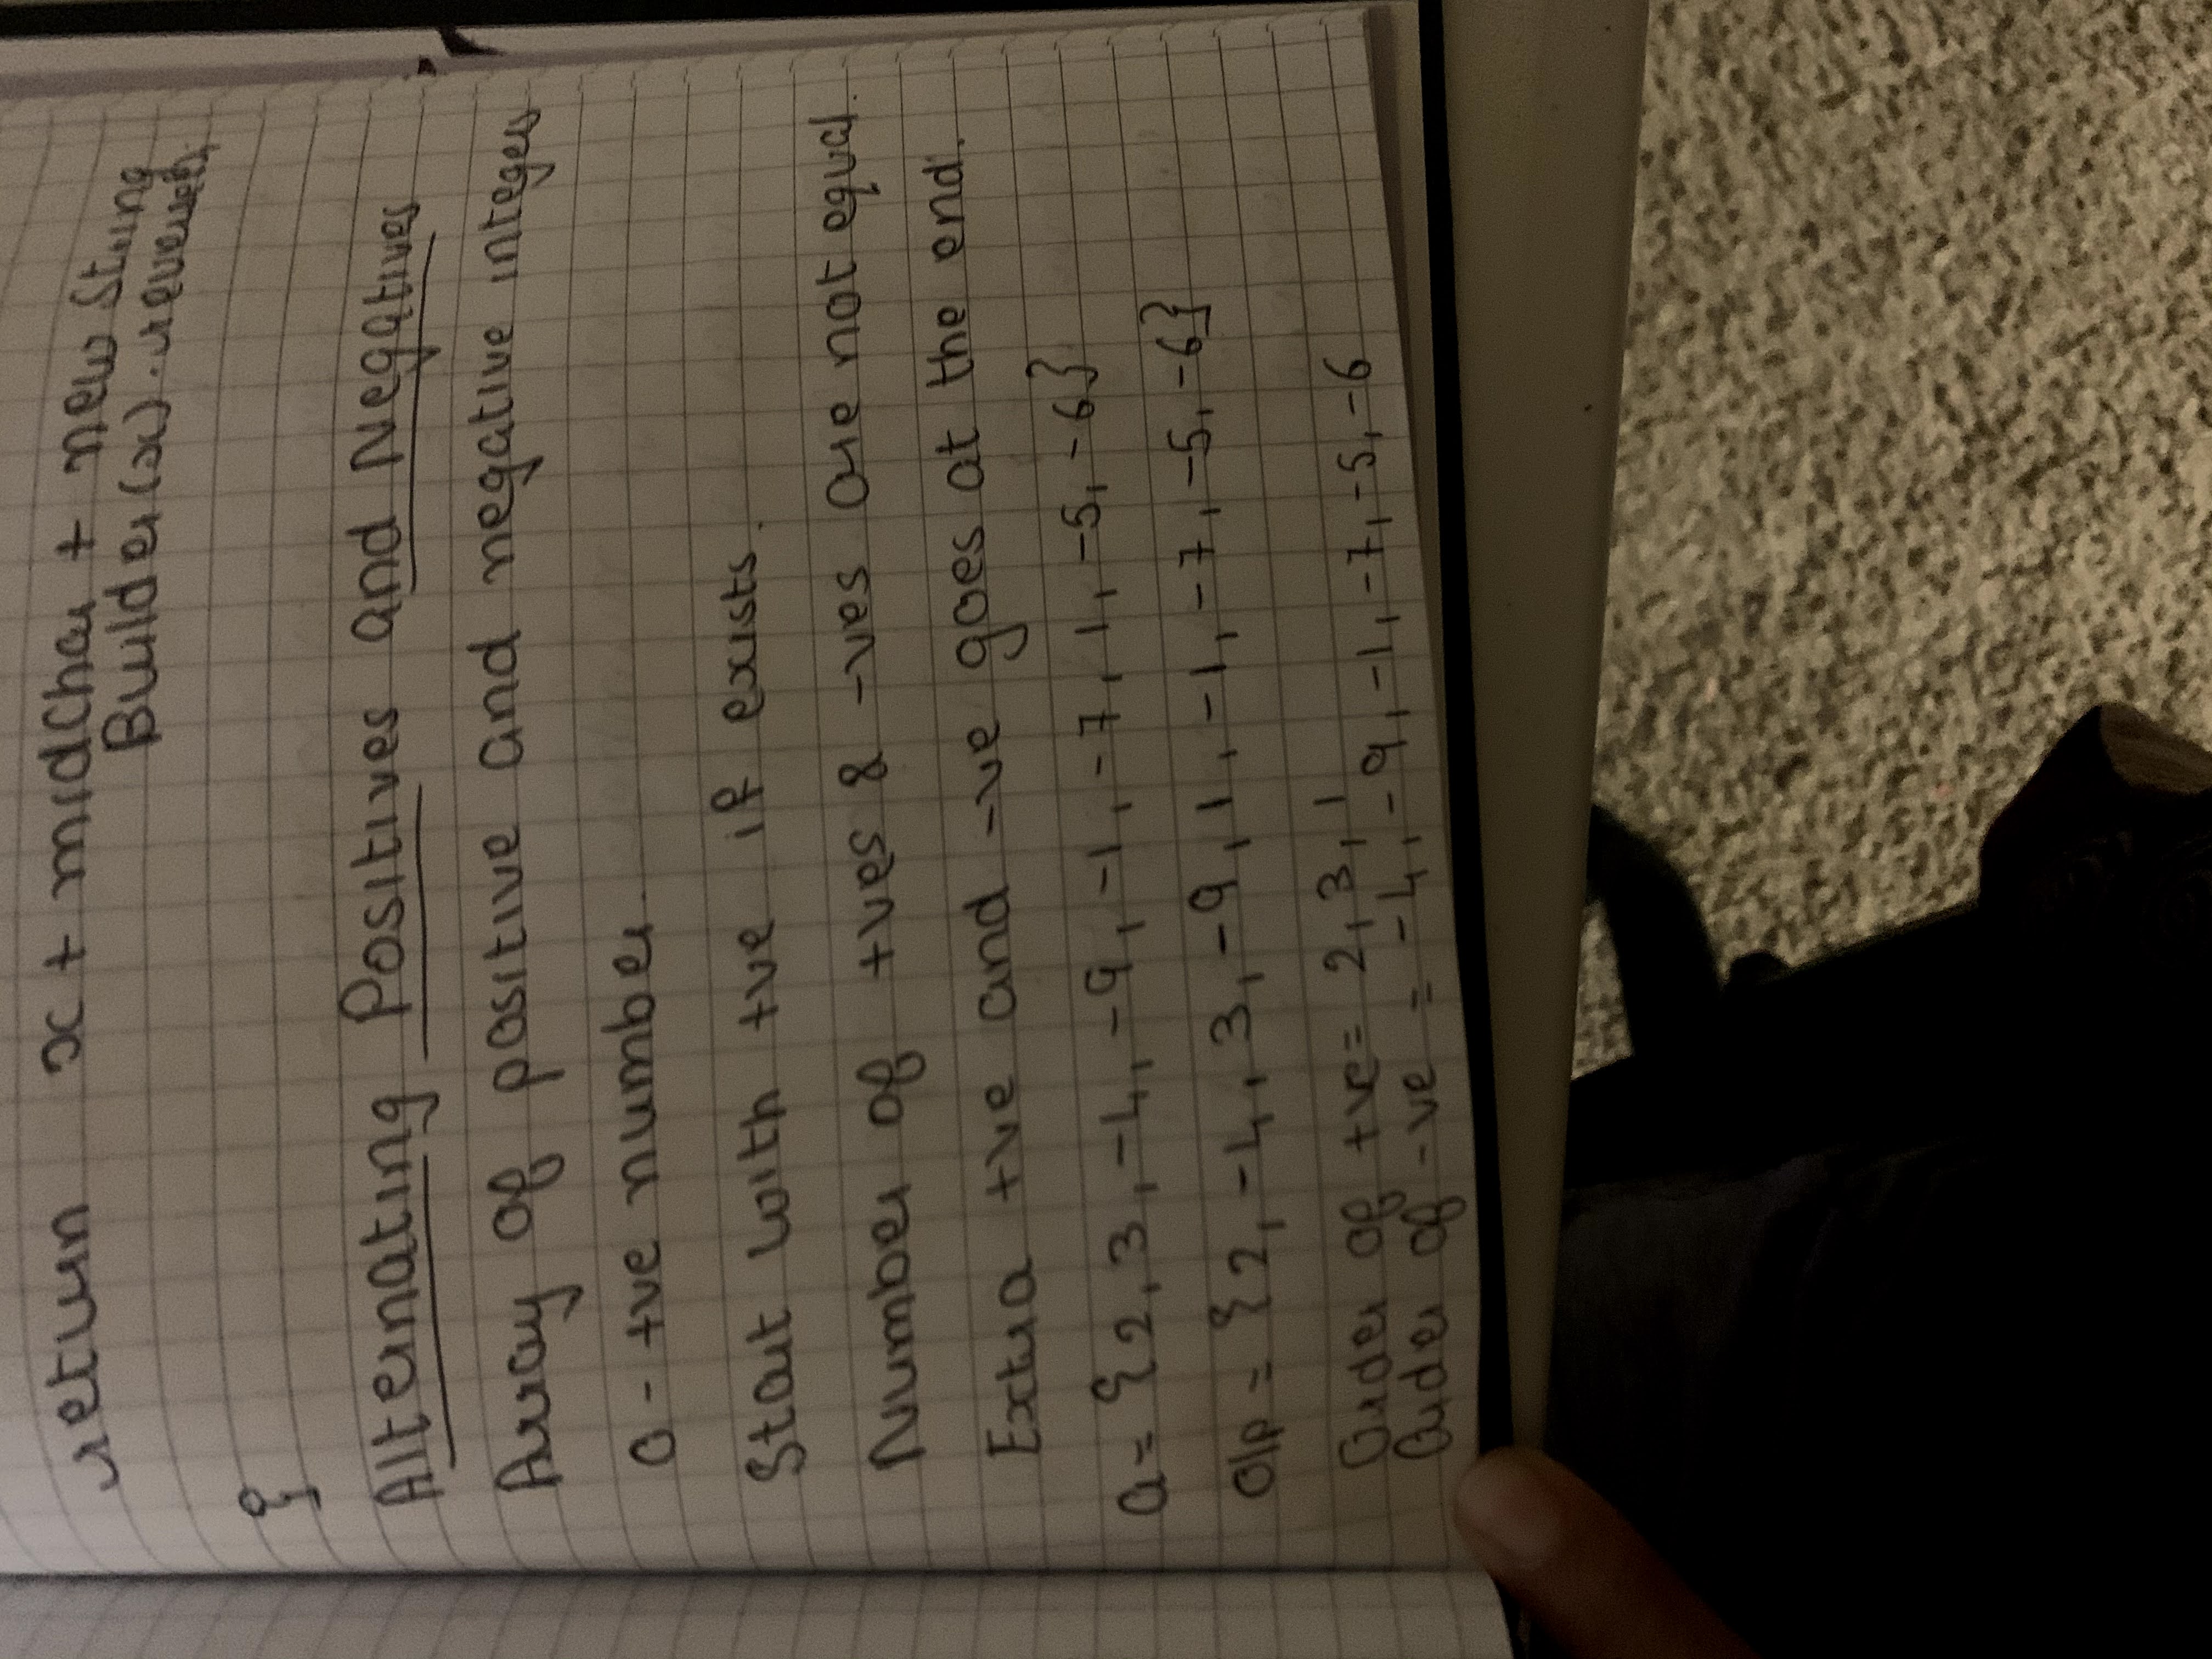 return x + midChar + new String
Builder(x).reverse();
}
Alternating Positives and Negatives
Array of positive and negative integers
0 - +ve number.
Start with +ve if exists.
Number of +ves & -ves are not equal.
Extra +ve and -ve goes at the end.
a = {2, 3, -4, -9, -1, -7, 1, -5, -6}
O/p = {2, -4, 3, -9, 1, -1, -7, -5, -6}
Order of +ve = 2, 3, 1
Order of -ve = -4, -9, -1, -7, -5, -6